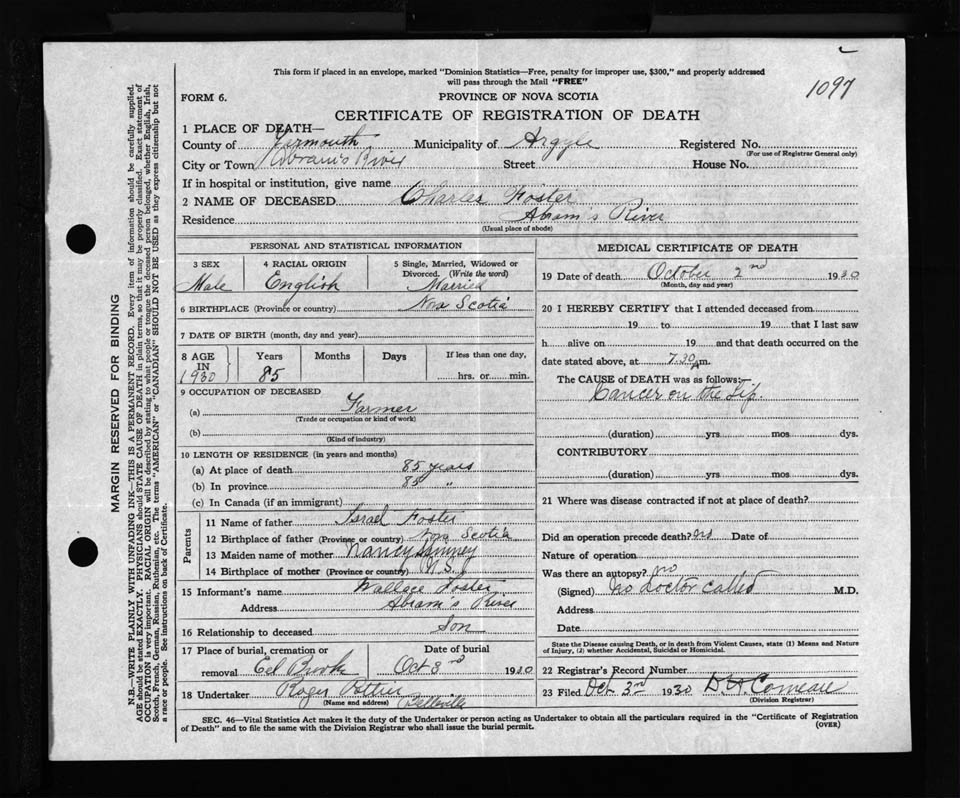 This form if placed in an envelope, marked "Dominion Statistics—Free, penalty for improper use, $300," and properly addressed
will pass through the Mail "FREE"
1097
FORM 6.
PROVINCE OF NOVA SCOTIA
CERTIFICATE OF REGISTRATION OF DEATH
1 PLACE OF DEATH—
County of Yarmouth Municipality of Argyle Registered No.
(For use of Registrar General only)
City or Town Abram's River Street House No.
If in hospital or institution, give name
2 NAME OF DECEASED Charles Foster
Residence Abram's River
(Usual place of abode)
PERSONAL AND STATISTICAL INFORMATION
3 SEX 4 RACIAL ORIGIN 5 Single, Married, Widowed or
Divorced. (Write the word)
Male English Married
6 BIRTHPLACE (Province or country) Nova Scotia
7 DATE OF BIRTH (month, day and year)
8 AGE IN 1930 Years 85 Months Days If less than one day,
hrs. or min.
9 OCCUPATION OF DECEASED
(a) Farmer
(Trade or occupation or kind of work)
(b)
(Kind of industry)
10 LENGTH OF RESIDENCE (in years and months)
(a) At place of death 85 years
(b) In province 85 "
(c) In Canada (if an immigrant)
Parents
11 Name of father Israel Foster
12 Birthplace of father (Province or country) Nova Scotia
13 Maiden name of mother Nancy
14 Birthplace of mother (Province or country) N.S.
15 Informant's name Wallace Foster
Address Abram's River
16 Relationship to deceased Son
17 Place of burial, cremation or Date of burial
removal Eel Brook Oct 3rd 1930
18 Undertaker Roger Pottier
(Name and address) Belleville
MEDICAL CERTIFICATE OF DEATH
19 Date of death October 2nd 1930
(Month, day and year)
20 I HEREBY CERTIFY that I attended deceased from
19 to 19 that I last saw
h alive on 19 and that death occurred on the
date stated above, at 7.30 A m.
The CAUSE of DEATH was as follows:—
Cancer on the Lip.
(duration) yrs mos dys.
CONTRIBUTORY
(duration) yrs mos dys.
21 Where was disease contracted if not at place of death?
Did an operation precede death? Date of
Nature of operation
Was there an autopsy? no
(Signed) No Doctor Called M.D.
Address
Date
State the Disease causing Death, or in death from Violent Causes, state (1) Means and Nature
of Injury, (2) whether Accidental, Suicidal or Homicidal.
22 Registrar's Record Number
23 Filed Oct 3rd 1930 Comeau
(Division Registrar)
SEC. 46—Vital Statistics Act makes it the duty of the Undertaker or person acting as Undertaker to obtain all the particulars required in the "Certificate of Registration
of Death" and to file the same with the Division Registrar who shall issue the burial permit.
(OVER)
MARGIN RESERVED FOR BINDING
N.B.—WRITE PLAINLY WITH UNFADING INK—THIS IS A PERMANENT RECORD. Every item of information should be carefully supplied.
AGE should be stated EXACTLY. PHYSICIANS should STATE CAUSE OF DEATH in plain terms, so that it may be properly classified. Exact statement of
OCCUPATION is very important. RACIAL ORIGIN will be described by stating to what people or tongue the deceased person belonged, whether English, Irish,
Scotch, French, German, Russian, Ruthenian, etc. The terms "AMERICAN" or "CANADIAN" SHOULD NOT BE USED as they express citizenship but not
a race or people. See instructions on back of Certificate.